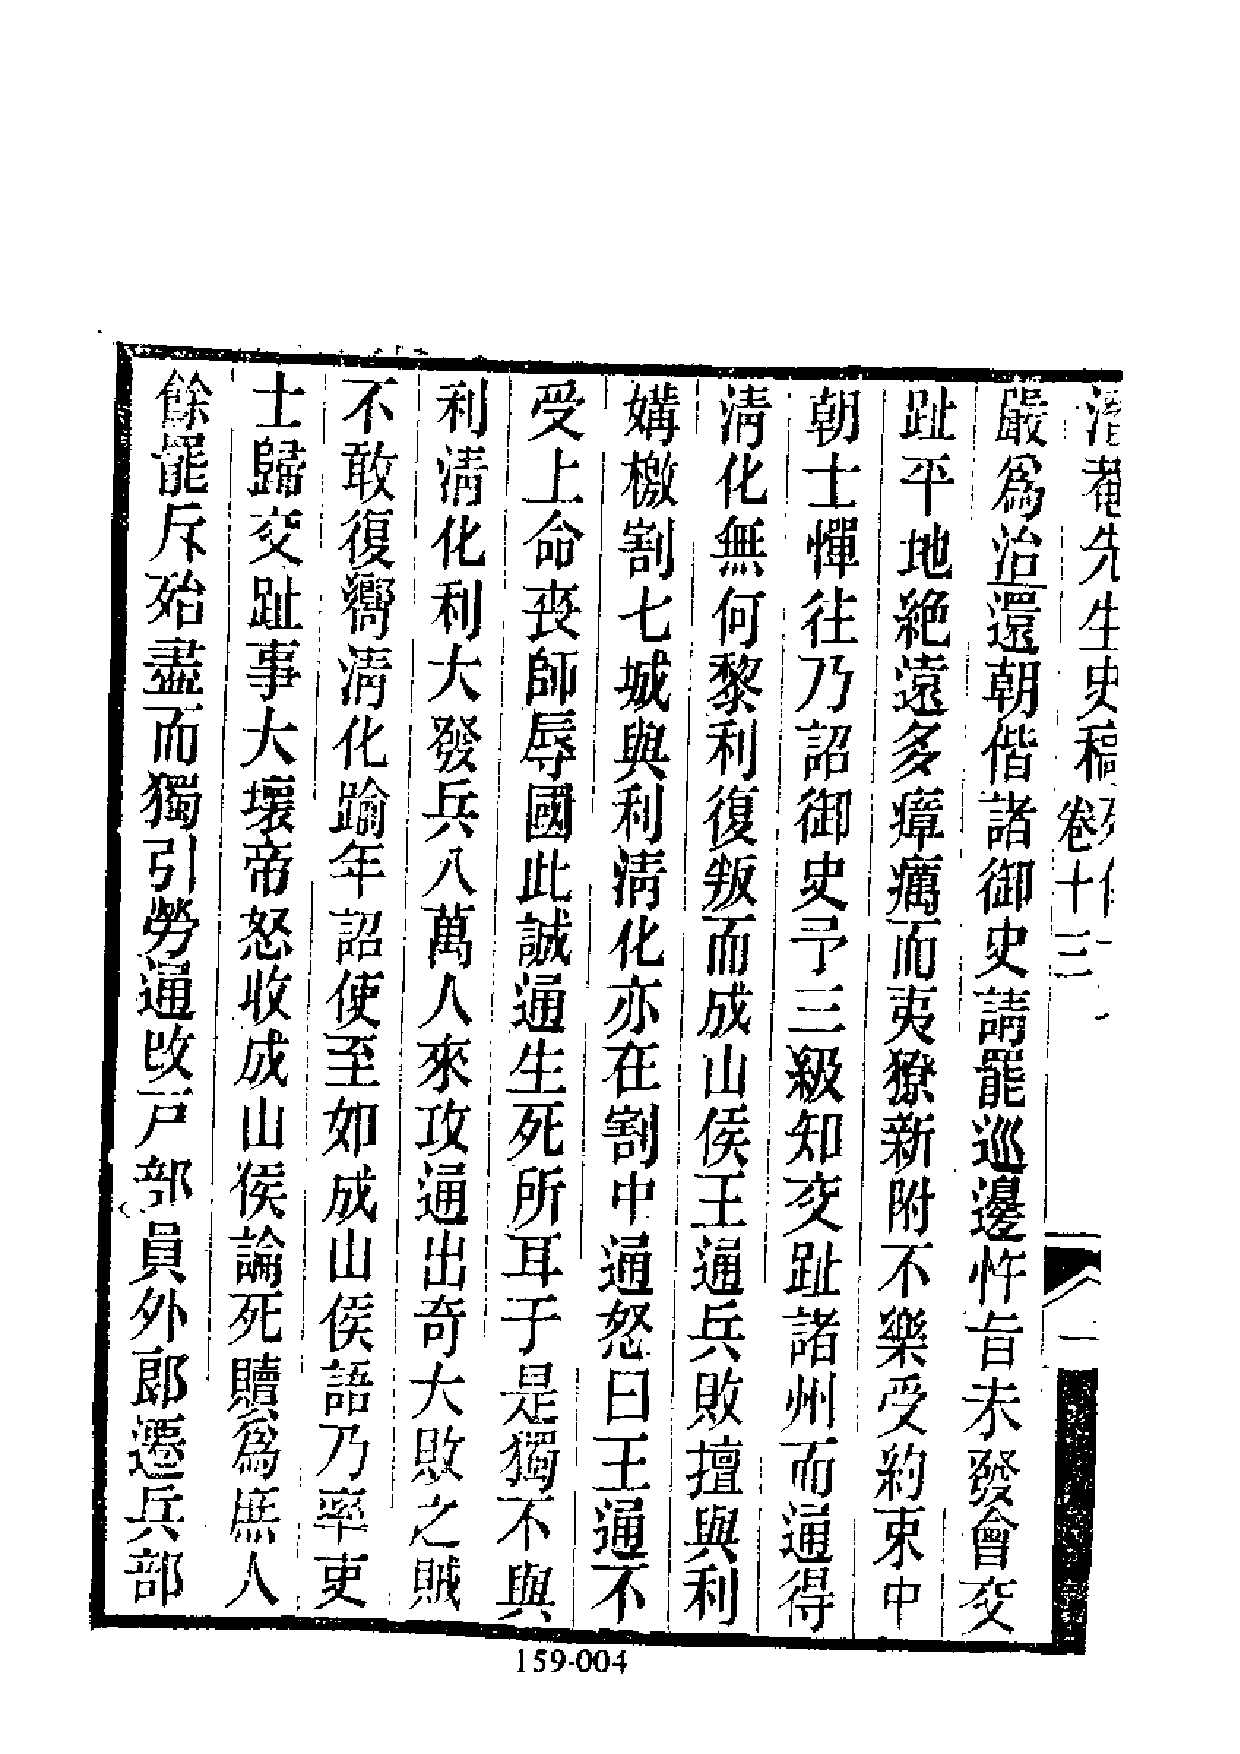 潛菴先生史稿 卷十三 一
嚴爲治還朝偕諸御史請罷巡邊忤旨未發會交
趾平地絕遠多瘴癘而夷獠新附不樂受約束中
朝士憚往乃詔御史予三級知交趾諸州而通得
淸化無何黎利復叛而成山侯王通兵敗擅與利
媾檄割七城與利淸化亦在割中通怒曰王通不
受上命喪師辱國此誠通生死所耳于是獨不與
利淸化利大發兵八萬人來攻通出奇大敗之賊
不敢復嚮淸化踰年詔使至如成山侯語乃率吏
士歸交趾事大壞帝怒收成山侯論死贖爲庶人
餘罷斥殆盡而獨引勞通改戸部員外郞遷兵部
159-004